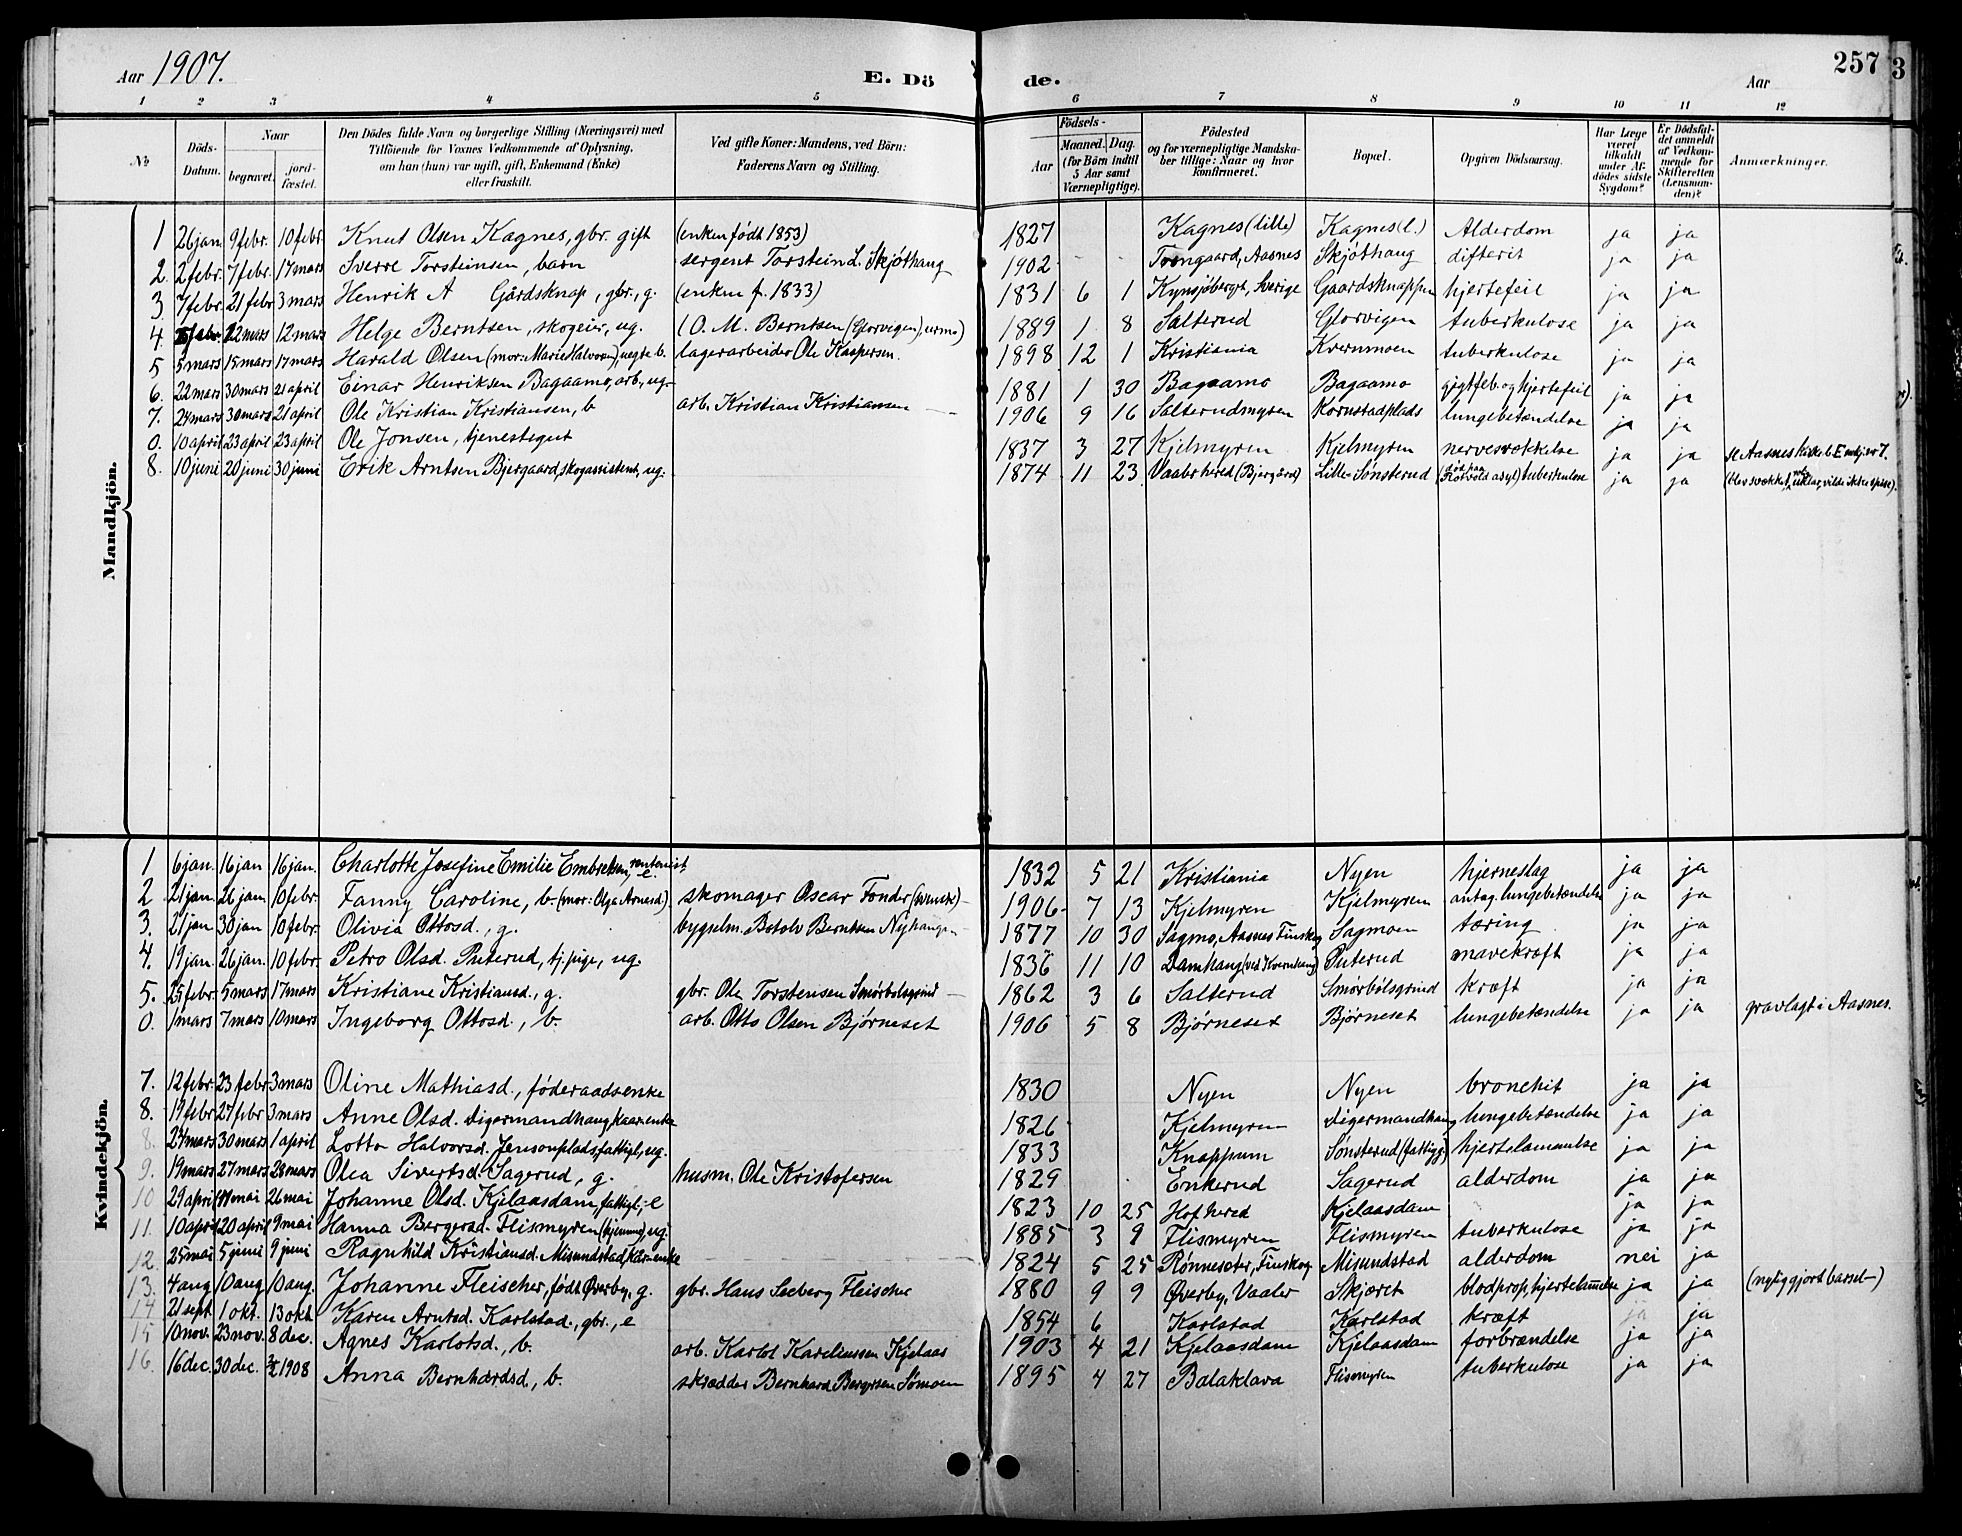 Aar 1907.
E. Dö
de.
Aar
257
3
1 2 3 4 5 6 7 8 9 10 11 12
№
Döds-Datum.
Naar
begravet.
jord-fæstet.
Den Dödes fulde Navn og borgerlige Stilling (Næringsvei) med
Tilföiende for Voxnes Vedkommende af Oplysning,
om han (hun) var ugift, gift, Enkemand (Enke)
eller fraskilt.
Ved gifte Koner: Mandens, ved Börn:
Faderens Navn og Stilling.
Födsels-
Aar
Maaned. Dag.
(for Börn indtil
5 Aar samt
Værnepligtige).
Födested
og for værnepligtige Mandska-
ber tillige: Naar og hvor
konfirmeret.
Bopæl.
Opgiven Dödsaarsag.
Har Læge
været
tilkaldt
under Af-
dödes sidste
Sygdom?
Er Dödsfal-
det anmeldt
af Vedkom-
mende for
Skifteretten
(Lensman-
den)?
Anmærkninger.
Mandkjön.
1 26 jan. 9 febr. 10 febr. Knut Olsen Kagnes, gbr. gift (enken født 1853) 1827 Kagnes (lille) Kagnes (l.) Alderdom ja ja
2. 2 febr. 7 febr. 17 mars Sverre Torsteinsen, barn sergent Torstein L. Skjøthaug 1902 - - Trongaard, Aasnes Skjøthaug difterit ja ja
3. 7 febr. 21 febr. 3 mars Henrik A Gårdsknap, gbr., g. (enken f. 1833) 1831 6 1 Kynsjøberget, Sverige Gaardsknappen hjertefeil ja ja
4. 12 mars 12 mars Helge Berntsen, skogeier, ug. (O. M. Berntsen (Glorvigen), urm.) 1889 1 8 Salterud Glorvigen tuberkulose ja ja
5 5 mars 15 mars 17 mars Harald Olsen (mor: Marie Halvorsd), uegte b. lagerarbeider Ole Kaspersen. 1898 12 1 Kristiania Kvernmoen tuberkulose ja ja
6. 22 mars 30 mars 21 april Einar Henriksen Bagaamo, arb., ug. 1881 1 30 Bagaamo Bagaamo gigtfeb. og hjertefeil ja ja
7. 24 mars 30 mars 21 april Ole Kristian Kristiansen, b arb. Kristian Kristiansen 1906 9 16 Salterudmyren Kornstadplads lungebetændelse ja ja
0. 10 april 23 april 23 april Ole Jonsen, tjenestegut 1837 3 27 Kjelmyren Kjelmyren nervesvekkelse ja ja se Aasnes kirkeb. E mkj. nr 7.
8. 10 juni 20 juni 30 juni Erik Arntsen Bjergaard, skogassistent, ug. 1874 11 23 Vaaler hered (Bjergård) Lille-Sønsterud (død paa Rotvold asyl) tuberkulose ja ja (blev svekket, vilde ikke spise).
Kvindekjön.
1 6 jan. 16 jan 16 jan. Charlotte Josefine Emilie Embretsen, rentenist e. 1832 5 21 Kristiania Nyen hjerneslag ja ja
2 21 jan. 26 jan. 10 febr. Fanny Caroline, b. (mor: Olga Arnesd) skomager Oscar Fonder (svenske) 1906 7 13 Kjelmyren Kjelmyren antag. lungebetændelse ja ja
3. 21 jan 30 jan 10 febr. Olivia Ottosd., g. bygselm. Betolv Berntsen Nyhaugen 1877 10 30 Sagmo, Aasnes Finskog Sagmoen tæring ja ja
4. 19 jan. 26 jan. 10 febr. Petro Olsd. Puterud, tj. pige, ug. 1836 11 10 Damhaug (ved Kvernhaug) Puterud mavekræft ja ja
5. 25 febr. 5 mars 17 mars Kristiane Kristiansd., g. gbr. Ole Torstensen Smørbølsgrind 1862 3 6 Salterud Smørbølsgrind kræft ja ja
0. 1 mars 7 mars 10 mars Ingeborg Ottosd., b. arb. Otto Olsen Bjørneset 1906 5 8 Bjørneset Bjørneset lungebetændelse ja ja gravlagt i Aasnes.
7. 12 febr. 23 febr 3 mars Oline Mathiasd., føderaadsenke 1830 Nyen Nyen bronchit ja ja
8. 19 febr 27 febr 3 mars Anne Olsd. Digermandhaug, kaarenke 1826 Kjelmyren Digermandhaug lungebetændelse ja ja
8. 24 mars 30 mars 1 april Lotta Halvorsd. Jensonplads, fattigl., ug. 1833 Knappum Sønsterud (fattigg) hjertelammelse ja ja
9. 19 mars 27 mars 28 mars Olea Sivertsd. Sagerud, g. husm. Ole Kristofersen 1829 Enkerud Sagerud alderdom ja ja
10 29 april mai 26 mai Johanne Olsd. Kjelaasdam, fattigl., e 1823 10 25 Hof hered Kjelaasdam ja ja
11. 10 april 20 april 9 mai Hanna Bergersd. Flismyren (hjemme), ug. 1885 3 9 Flismyren Flismyren tuberkulose ja ja
12. 25 mai 5 juni 9 juni Ragnhild Kristiansd. Misundstad, kårenke 1824 5 25 Rønnesæter, Finskog Misundstad alderdom nei ja
13. 4 aug 10 aug 10 aug. Johanne Fleischer, født Øverby, g. gbr. Hans Seeberg Fleischer 1880 9 9 Øverby, Vaaler Skjæret blodprop, hjertelam̄else ja ja (nylig gjort barsel-)
14 21 sept. 1 okt. 13 okt. Karen Arntsd. Karlstad, gbr., e 1854 6 Karlstad Karlstad kræft ja ja
15 10 nov. 23 nov. 8 dec. Agnes Karlotsd., b. arb. Karlot Kareliussen Kjelaas 1903 4 21 Kjelaasdam Kjelaasdam forbrændelse ja ja
16. 16 dec. 30 dec. 1908 Anna Bernhardsd., b. skrædder Bernhard Bergersen Sømoen 1895 4 27 Balaklava Flismyren tuberkulose ja ja